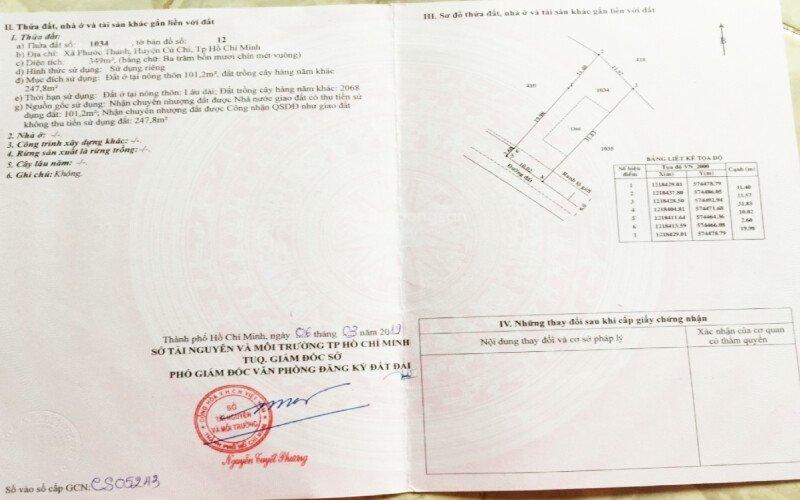 II. Thửa đất, nhà ở và tài sản khác gắn liền với đất
1. Thửa đất:
a) Thửa đất số: 1034, tờ bản đồ số: 12
b) Địa chỉ: Xã Phước Thạnh, Huyện Củ Chi, Tp Hồ Chí Minh
c) Diện tích: 349m², (bằng chữ: Ba trăm bốn mươi chín mét vuông)
d) Hình thức sử dụng: Sử dụng riêng
đ) Mục đích sử dụng: Đất ở tại nông thôn 101,2m²; đất trồng cây hàng năm khác
247,8m²
e) Thời hạn sử dụng: Đất ở tại nông thôn: Lâu dài; Đất trồng cây hàng năm: 2068
g) Nguồn gốc sử dụng: Nhận chuyển nhượng đất được Nhà nước giao đất có thu tiền sử
dụng đất: 101,2m²; Nhận chuyển nhượng đất được Công nhận QSDĐ như giao đất
không thu tiền sử dụng đất: 247,8m²
2. Nhà ở: -/-
3. Công trình xây dựng khác: -/-
4. Rừng sản xuất là rừng trồng: -/-
5. Cây lâu năm: -/-
6. Ghi chú: Không.
Thành phố Hồ Chí Minh, ngày 06 tháng 03 năm 2019
SỞ TÀI NGUYÊN VÀ MÔI TRƯỜNG TP HỒ CHÍ MINH
TUQ. GIÁM ĐỐC SỞ
PHÓ GIÁM ĐỐC VĂN PHÒNG ĐĂNG KÝ ĐẤT ĐAI
SỞ
TÀI NGUYÊN
VÀ MÔI TRƯỜNG
Nguyễn Tuyết Phương
Số vào sổ cấp GCN: CS05243
III. Sơ đồ thửa đất, nhà ở và tài sản khác gắn liền với đất
B
2
11.40
11.57
410
1034
3
19.98
Ont
31.83
1035
10.02
4
Ranh lộ giới
Đường đất
BẢNG LIỆT KÊ TỌA ĐỘ
Số hiệu điểm Tọa độ VN_2000 Cạnh (m)
X(m) Y(m)
1 1218429.01 574478.79
11.40
2 1218437.80 574486.05
11.57
3 1218428.50 574492.94
31.83
4 1218404.81 574471.68
10.02
5 1218411.64 574464.36
2.60
6 1218413.59 574466.08
19.98
1 1218429.01 574478.79
IV. Những thay đổi sau khi cấp giấy chứng nhận
Nội dung thay đổi và cơ sở pháp lý
Xác nhận của cơ quan
có thẩm quyền